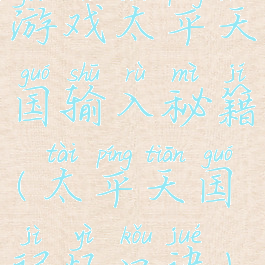 游戏太平天
guó shū rù mì jí
国输入秘籍
tài píng tiān guó
(太平天国
jì yì kǒu jué
口诀)